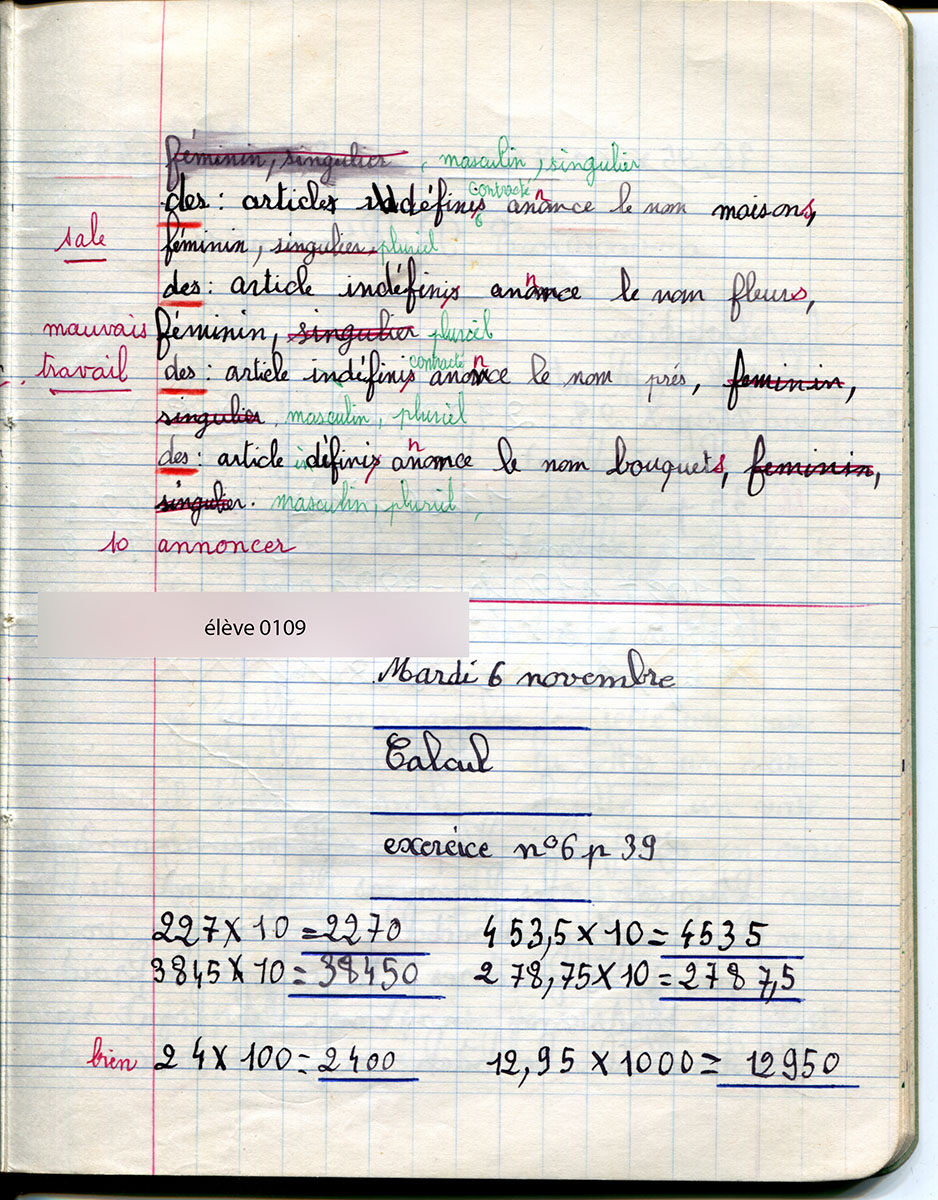 féminin, singulier, masculin, singulier
des : articles indéfinis contracté annonce le nom maisons,
sale féminin, singulier, pluriel
des : article indéfinis annonce le nom fleurs,
mauvais féminin, singulier pluriel
travail des : article indéfinis contracté annonce le nom prés, feminin,
singulier masculin, pluriel
des : article indéfinis annonce le nom bouquets, feminin,
singulier. masculin, pluriel,
10 annoncer
élève 0109
Mardi 6 novembre
Calcul
exercice n°6 p 39
227 x 10 = 2270 453,5 x 10 = 4535
3845 x 10 = 38450 278,75 x 10 = 2787,5
bien 24 x 100 = 2400 12,95 x 1000 = 12950